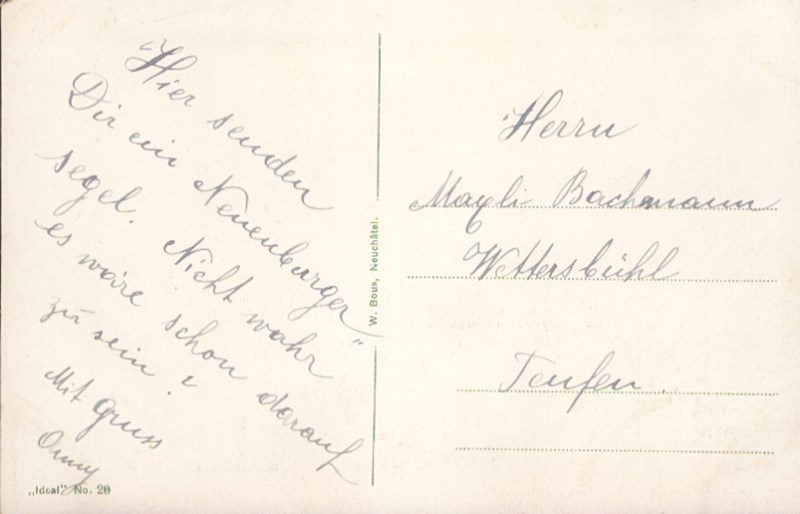 Hier senden
Dir ein Neuenburger"
segel. Nicht wahr
es wäre schon darauf
zu sein?
Mit Gruss
W. Bous, Neuchâtel.
Herrn
Bachmann
Wettersbühl
Teufen.
„Ideal" No. 20